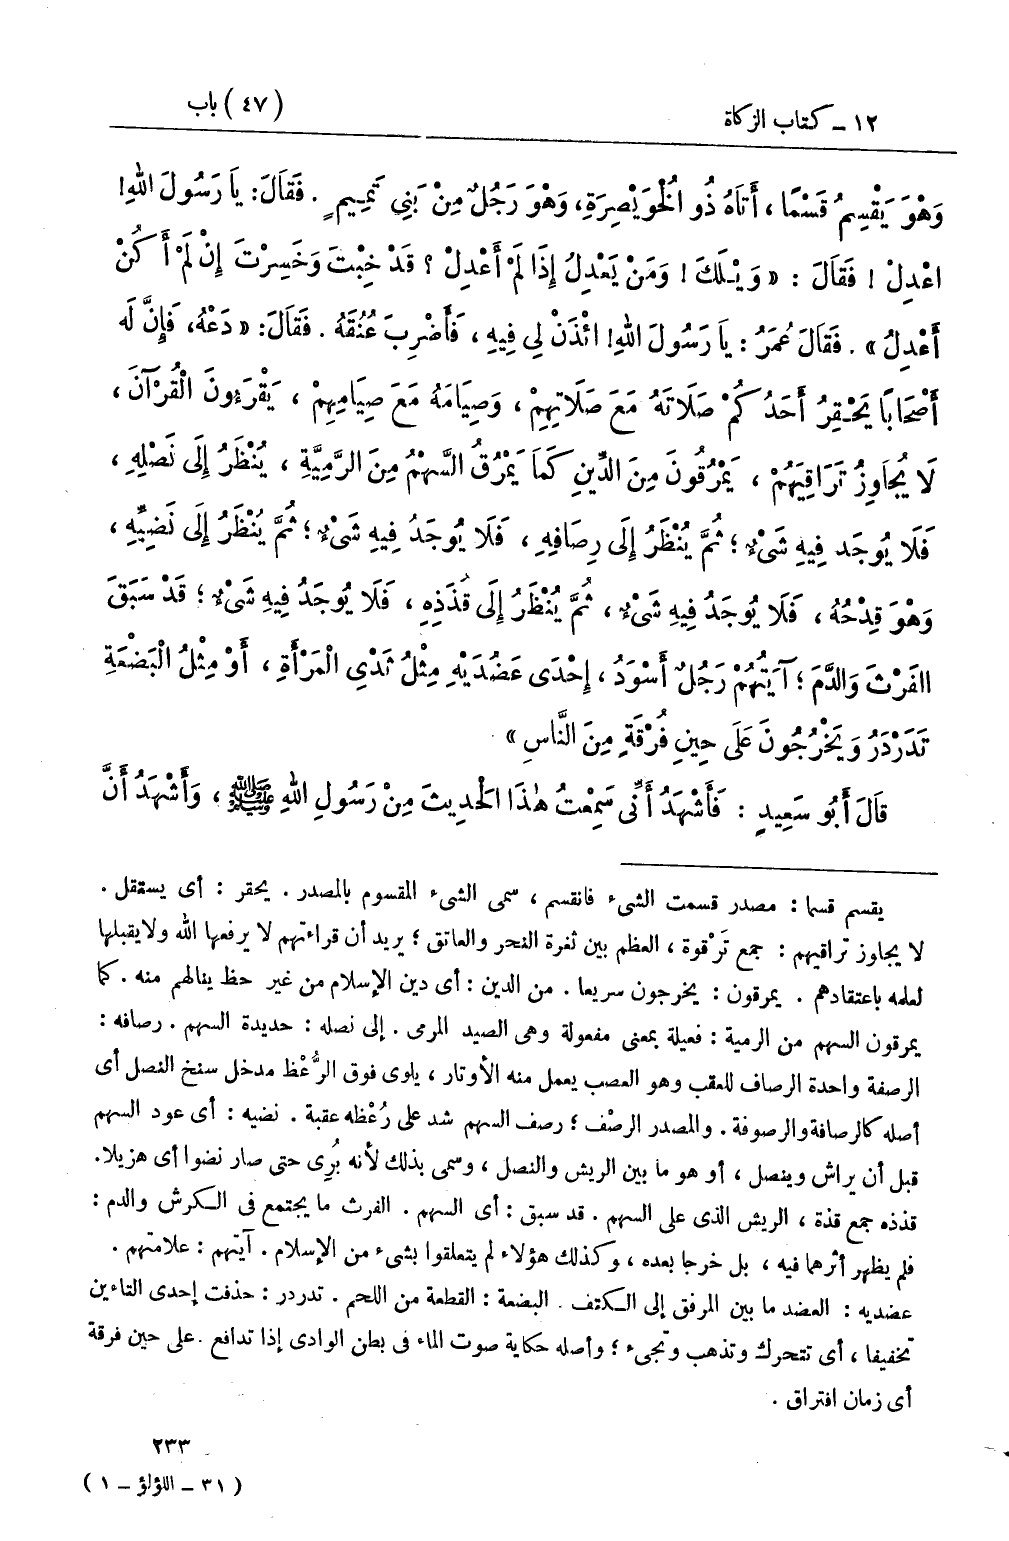 ١٢ - كتاب الزكاة
(٤٧) باب
وَهْوَ يَقْسِمُ قَسْمًا ، أَتَاهُ ذُو الْخُوَيْصِرَةِ، وَهْوَ رَجُلٌ مِنْ بَنِي تَمِيمٍ . فَقَالَ: يَا رَسُولَ اللهِ!
اعْدِلْ ! فَقَالَ : « وَيْلَكَ ! وَمَنْ يَعْدِلُ إِذَا لَمْ أَعْدِلْ ؟ قَدْ خِبْتَ وَخَسِرْتَ إِنْ لَمْ أَكُنْ
أَعْدِلُ » . فَقَالَ عُمَرُ : يَا رَسُولَ اللهِ! ائْذَنْ لِي فِيهِ ، فَأَضْرِبَ عُنُقَهُ . فَقَالَ: « دَعْهُ، فَإِنَّ لَهُ
أَصْحَابًا يَحْقِرُ أَحَدُكُمْ صَلَاتَهُ مَعَ صَلَاتِهِمْ ، وَصِيَامَهُ مَعَ صِيَامِهِمْ ، يَقْرَءُونَ الْقُرْآنَ ،
لَا يُجَاوِزُ تَرَاقِيَهُمْ ، يَمْرُقُونَ مِنَ الدِّينِ كَمَا يَمْرُقُ السَّهْمُ مِنَ الرَّمِيَّةِ ، يُنْظَرُ إِلَى نَصْلِهِ ،
فَلَا يُوجَد فِيهِ شَىْءٌ ؛ ثُمَّ يُنْظَرُ إِلَى رِصَافِهِ ، فَلَا يُوجَدُ فِيهِ شَىْءٌ ؛ ثُمَّ يُنْظَرُ إِلَى نَضِيِّهِ ،
وَهْوَ قِدْحُهُ ، فَلَا يُوجَدُ فِيهِ شَىْءٌ ، ثُمَّ يُنْظَرُ إِلَى قُذَذِهِ ، فَلَا يُوجَدُ فِيهِ شَىْءٌ ؛ قَدْ سَبَقَ
الفَرْثَ وَالدَّمَ ؛ آيَتُهُمْ رَجُلٌ أَسْوَدُ ، إِحْدَى عَضُدَيْهِ مِثْلُ ثَدْىِ الْمَرْأَةِ ، أَوْ مِثْلُ الْبَضْعَةِ
تَدَرْدَرُ وَيَخْرُجُونَ عَلَى حِينِ فُرْقَةٍ مِنَ النَّاسِ »
قَالَ أَبُو سَعِيدٍ : فَأَشْهَدُ أَنِّى سَمِعْتُ هٰذَا الْحَدِيثَ مِنْ رَسُولِ اللهِ ﷺ ، وَأَشْهَدُ أَنَّ
يقسم قسما : مصدر قسمت الشىء فانقسم ، سمى الشىء المقسوم بالمصدر . يحقر : أى يستقل .
لا يجاوز تراقيهم : جمع تَرْقوة ، العظم بين ثغرة النحر والعاتق ؛ يريد أن قراءتهم لا يرفعها الله ولا يقبلها
لعلمه باعتقادهم . يمرقون : يخرجون سريعا . من الدين : أى دين الإسلام من غير حظ ينالهم منه . كما
يمرقون السهم من الرمية : فعيلة بمعنى مفعولة وهى الصيد المرمى . إلى نصله : حديدة السهم . رصافه :
الرصفة واحدة الرصاف للعقب وهو العصب يعمل منه الأوتار ، يلوى فوق الرُّعْظ مدخل سنخ النصل أى
أصله كالرصافة والرصوفة . والمصدر الرصْف ؛ رصف السهم شد على رُعْظه عقبة . نضيه : أى عود السهم
قبل أن يراش وينصل ، أو هو ما بين الريش والنصل ، وسمى بذلك لأنه بُرِى حتى صار نضوا أى هزيلا.
قذذه جمع قذة ، الريش الذى على السهم . قد سبق : أى السهم . الفرث ما يجتمع فى الكرش والدم :
فلم يظهر أثرهما فيه ، بل خرجا بعده ، وكذلك هؤلاء لم يتعلقوا بشىء من الإسلام . آيتهم : علامتهم .
عضديه : العضد ما بين المرفق إلى الكتف . البضعة : القطعة من اللحم . تدردر : حذفت إحدى التاءين
تخفيفا ، أى تتحرك وتذهب وتجىء ؛ وأصله حكاية صوت الماء فى بطن الوادى إذا تدافع . على حين فرقة
أى زمان افتراق .
٢٣٣
( ٣١ - اللؤلؤ - ١ )